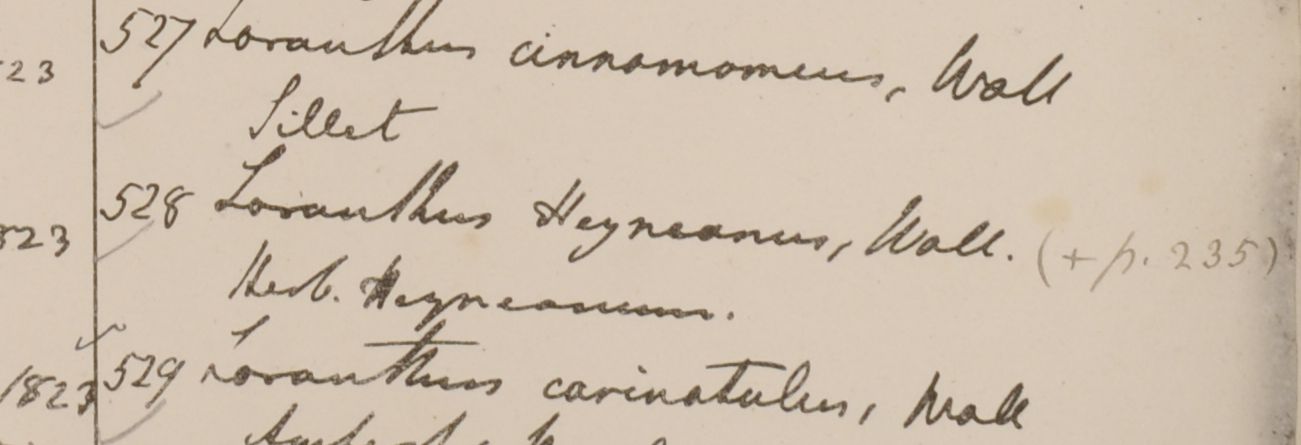 527 Loranthus cinnamomeus, Wall
23
Sillet
528 Loranthus Heyneanus, Wall. (+ p. 235)
823
Herb. Heyneanum.
529 Loranthus carinatulus, Wall
1823